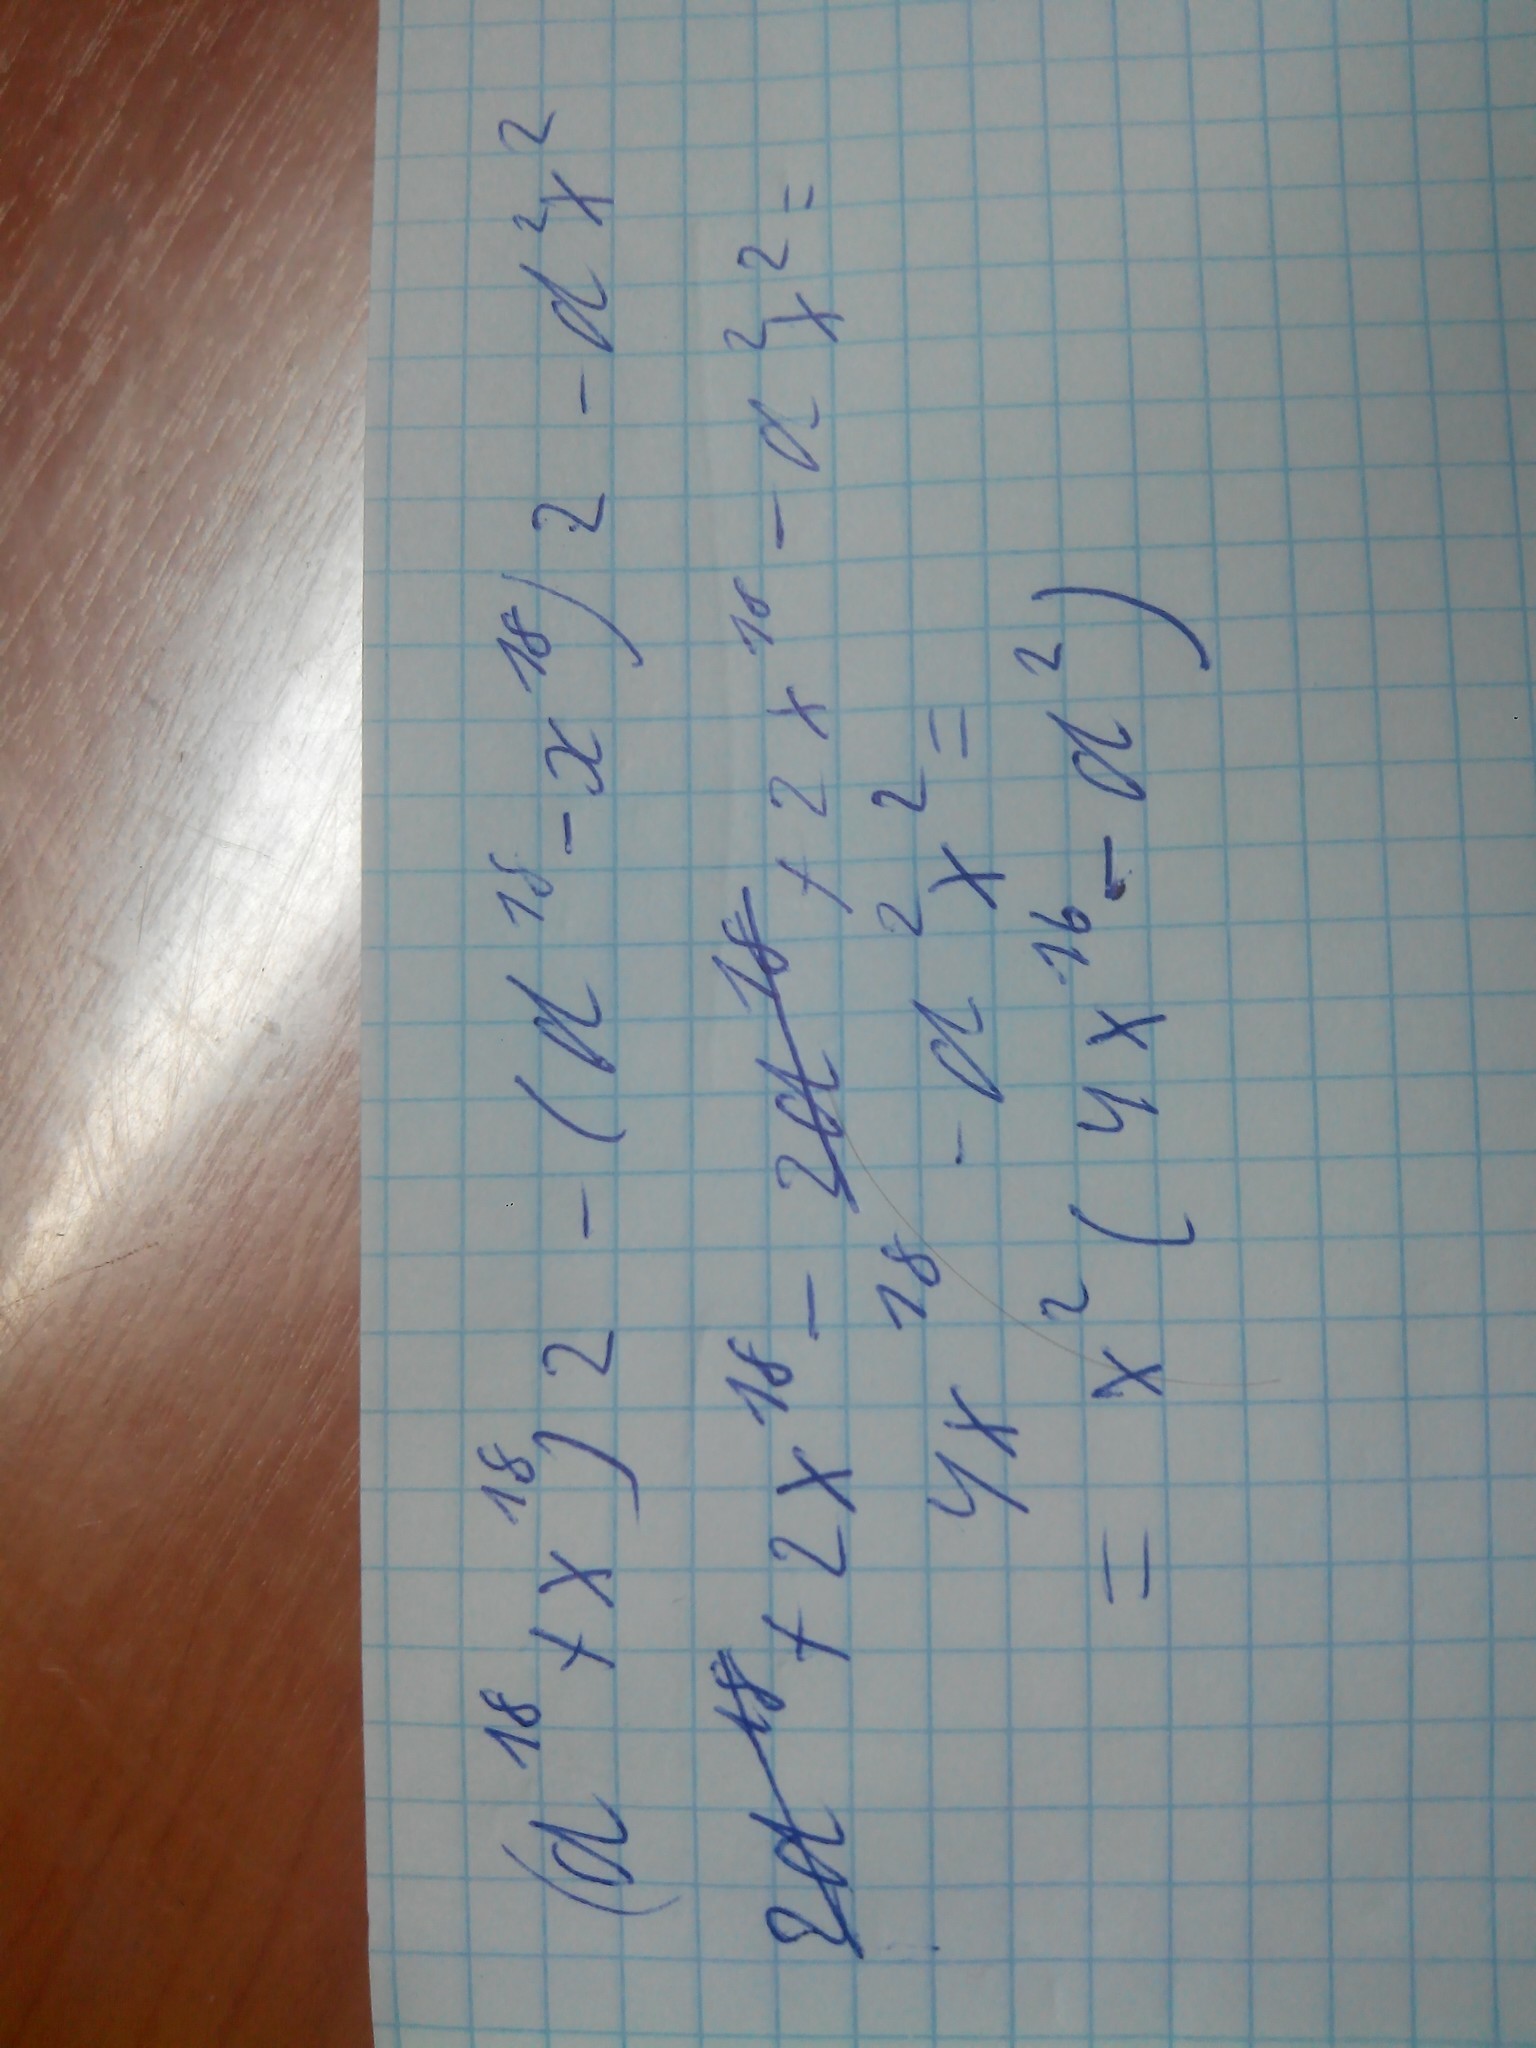 (a¹⁸ + x¹⁸)2 - (a¹⁸ - x¹⁸)2 - a²x²
2a¹⁸ + 2x¹⁸ - 2a¹⁸ + 2x¹⁸ - a²x² =
4x¹⁸ - a²x² =
= x²(4x¹⁶ - a²)